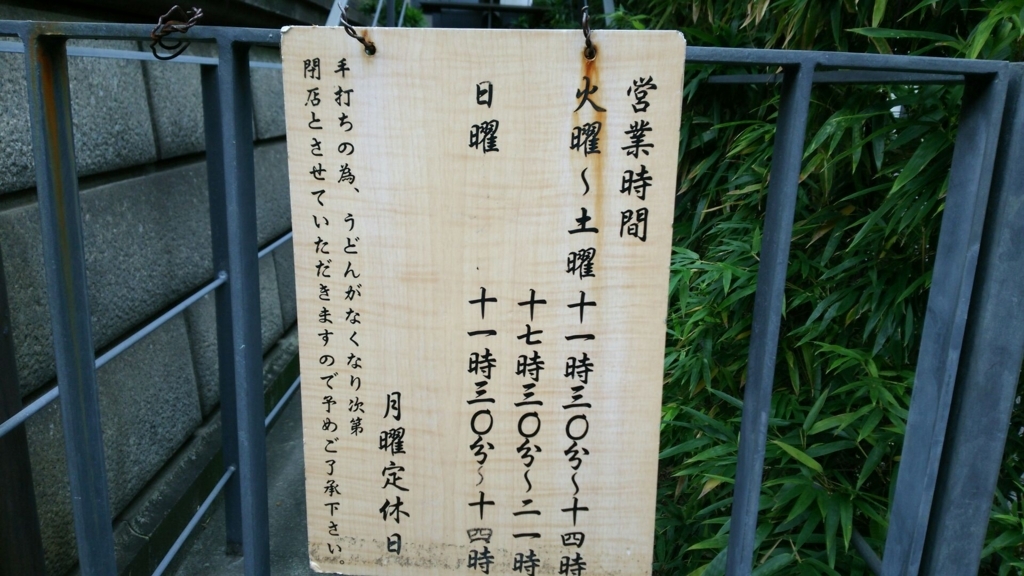 営業時間
火曜～土曜 十一時三〇分～十四時
十七時三〇分～二一時
日曜 十一時三〇分～十四時
月曜定休日
手打ちの為、うどんがなくなり次第
閉店とさせていただきますので予めご了承下さい。